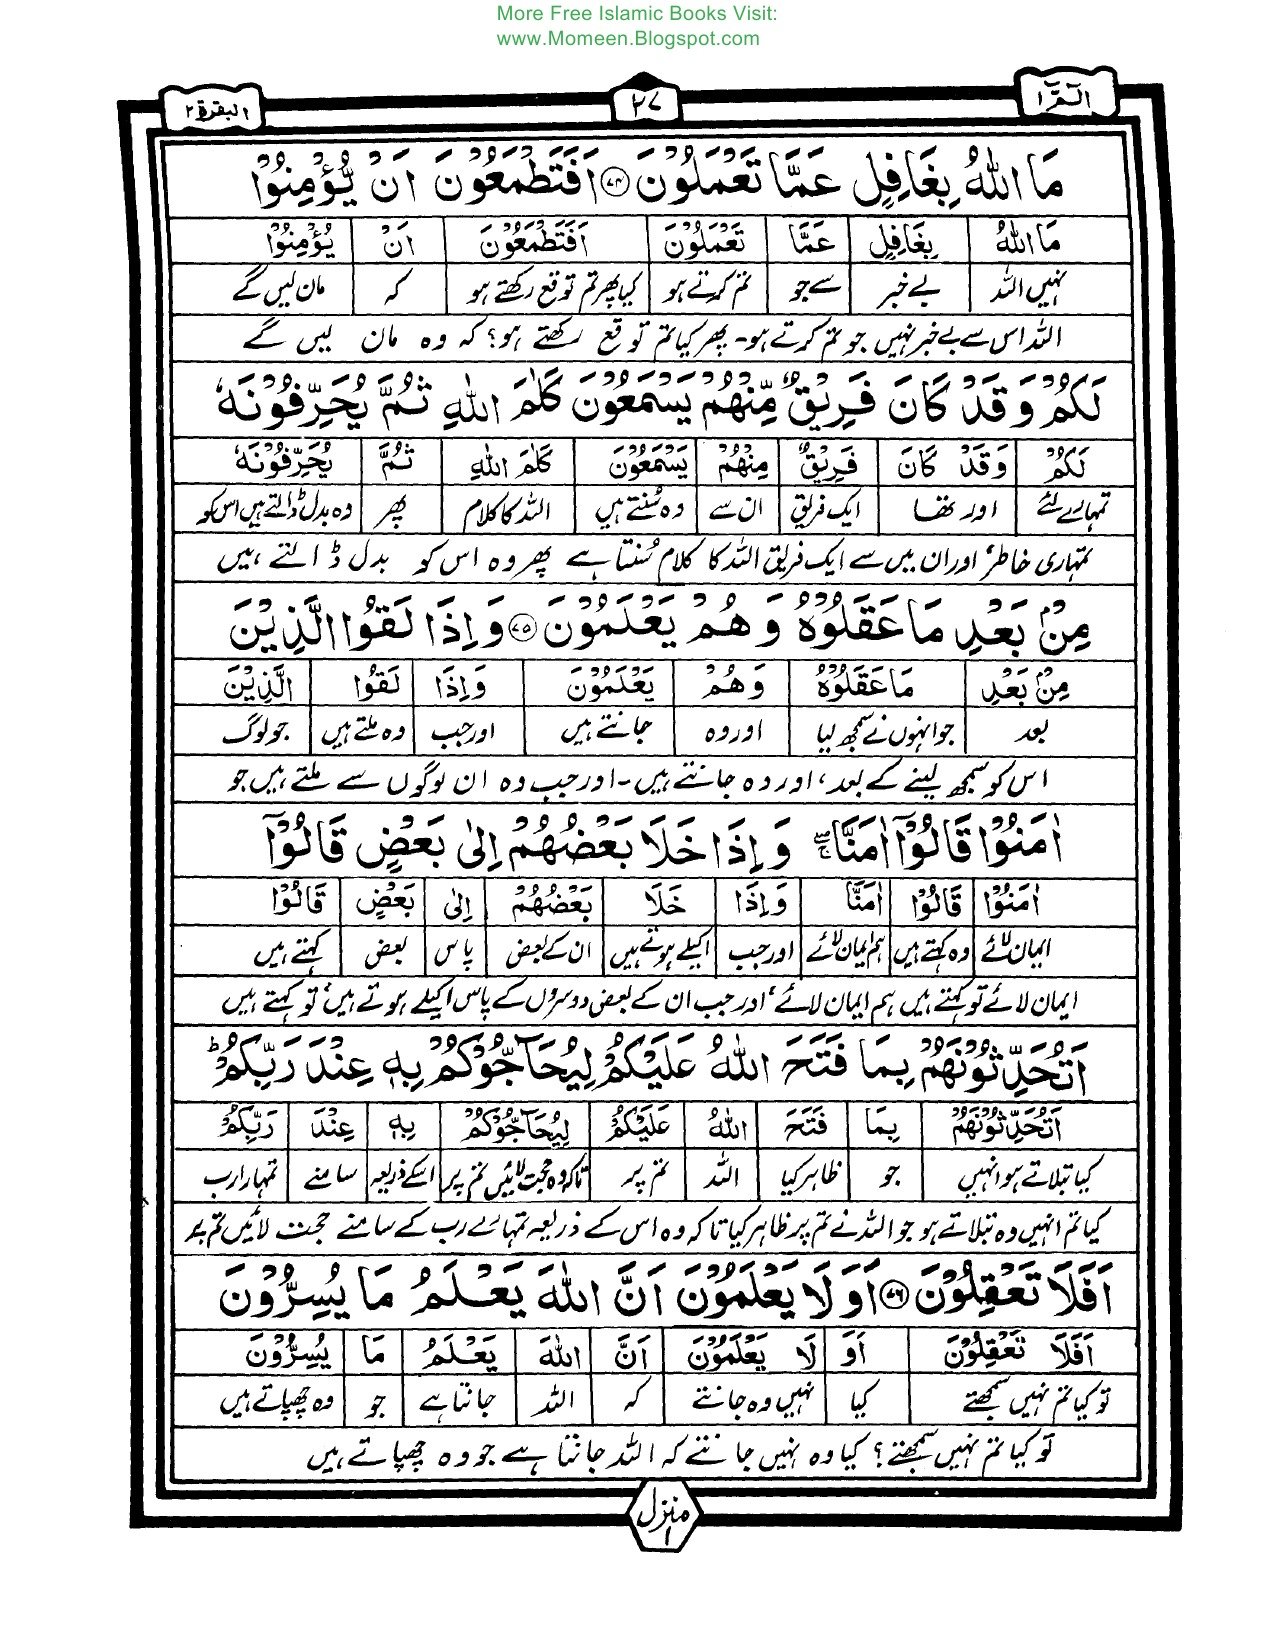 More Free Islamic Books Visit:
www.Momeen.Blogspot.com
الٓمّٓ ١ ٢٧ البقرة ٢
مَا اللّٰهُ بِغَافِلٍ عَمَّا تَعْمَلُوْنَ ﴿۷۴﴾ اَفَتَطْمَعُوْنَ اَنْ يُّؤْمِنُوْا
مَا اللّٰهُ بِغَافِلٍ عَمَّا تَعْمَلُوْنَ اَفَتَطْمَعُوْنَ اَنْ يُؤْمِنُوْا
نہیں اللہ بے خبر سے جو تم کرتے ہو کیا پھر تم توقع رکھتے ہو کہ مان لیں گے
اللہ اس سے بے خبر نہیں جو تم کرتے ہو۔ پھر کیا تم توقع رکھتے ہو؟ کہ وہ مان لیں گے
لَكُمْ وَقَدْ كَانَ فَرِيْقٌ مِّنْهُمْ يَسْمَعُوْنَ كَلٰمَ اللّٰهِ ثُمَّ يُحَرِّفُوْنَهٗ
لَكُمْ وَقَدْ كَانَ فَرِيْقٌ مِنْهُمْ يَسْمَعُوْنَ كَلٰمَ اللّٰهِ ثُمَّ يُحَرِّفُوْنَهٗ
تمہارے لئے اور تھا ایک فریق ان سے وہ سنتے ہیں اللہ کا کلام پھر وہ بدل ڈالتے ہیں اس کو
تمہاری خاطر، اور ان میں سے ایک فریق اللہ کا کلام سُنتا ہے پھر وہ اس کو بدل ڈالتے ہیں
مِنْۢ بَعْدِ مَا عَقَلُوْهُ وَهُمْ يَعْلَمُوْنَ ﴿۷۵﴾ وَاِذَا لَقُوا الَّذِيْنَ
مِنْۢ بَعْدِ مَا عَقَلُوْهُ وَهُمْ يَعْلَمُوْنَ وَاِذَا لَقُوا الَّذِيْنَ
بعد جو انہوں نے سمجھ لیا اور وہ جانتے ہیں اور جب وہ ملتے ہیں جو لوگ
اس کو سمجھ لینے کے بعد، اور وہ جانتے ہیں۔ اور جب وہ ان لوگوں سے ملتے ہیں جو
اٰمَنُوْا قَالُوْٓا اٰمَنَّا ۖۚ وَاِذَا خَلَا بَعْضُهُمْ اِلٰى بَعْضٍ قَالُوْٓا
اٰمَنُوْا قَالُوْٓا اٰمَنَّا وَاِذَا خَلَا بَعْضُهُمْ اِلٰى بَعْضٍ قَالُوْٓا
ایمان لائے وہ کہتے ہیں ہم ایمان لائے اور جب اکیلے ہوتے ہیں ان کے بعض پاس بعض کہتے ہیں
ایمان لائے تو کہتے ہیں ہم ایمان لائے، اور جب ان کے بعض دوسروں کے پاس اکیلے ہوتے ہیں، تو کہتے ہیں
اَتُحَدِّثُوْنَهُمْ بِمَا فَتَحَ اللّٰهُ عَلَيْكُمْ لِيُحَآجُّوْكُمْ بِهٖ عِنْدَ رَبِّكُمْ ؕ
اَتُحَدِّثُوْنَهُمْ بِمَا فَتَحَ اللّٰهُ عَلَيْكُمْ لِيُحَآجُّوْكُمْ بِهٖ عِنْدَ رَبِّكُمْ
کیا بتلاتے ہو انہیں جو ظاہر کیا اللہ تم پر تاکہ وہ حجت لائیں تم پر اسکے ذریعہ سامنے تمہارا رب
کیا تم انہیں وہ بتلاتے ہو جو اللہ نے تم پر ظاہر کیا تاکہ وہ اس کے ذریعہ تمہارے رب کے سامنے حجت لائیں تم پر
اَفَلَا تَعْقِلُوْنَ ﴿۷۶﴾ اَوَلَا يَعْلَمُوْنَ اَنَّ اللّٰهَ يَعْلَمُ مَا يُسِرُّوْنَ
اَفَلَا تَعْقِلُوْنَ اَوَ لَا يَعْلَمُوْنَ اَنَّ اللّٰهَ يَعْلَمُ مَا يُسِرُّوْنَ
تو کیا تم نہیں سمجھتے کیا نہیں وہ جانتے کہ اللہ جانتا ہے جو وہ چھپاتے ہیں
تو کیا تم نہیں سمجھتے؟ کیا وہ نہیں جانتے کہ اللہ جانتا ہے جو وہ چھپاتے ہیں
منزل ١